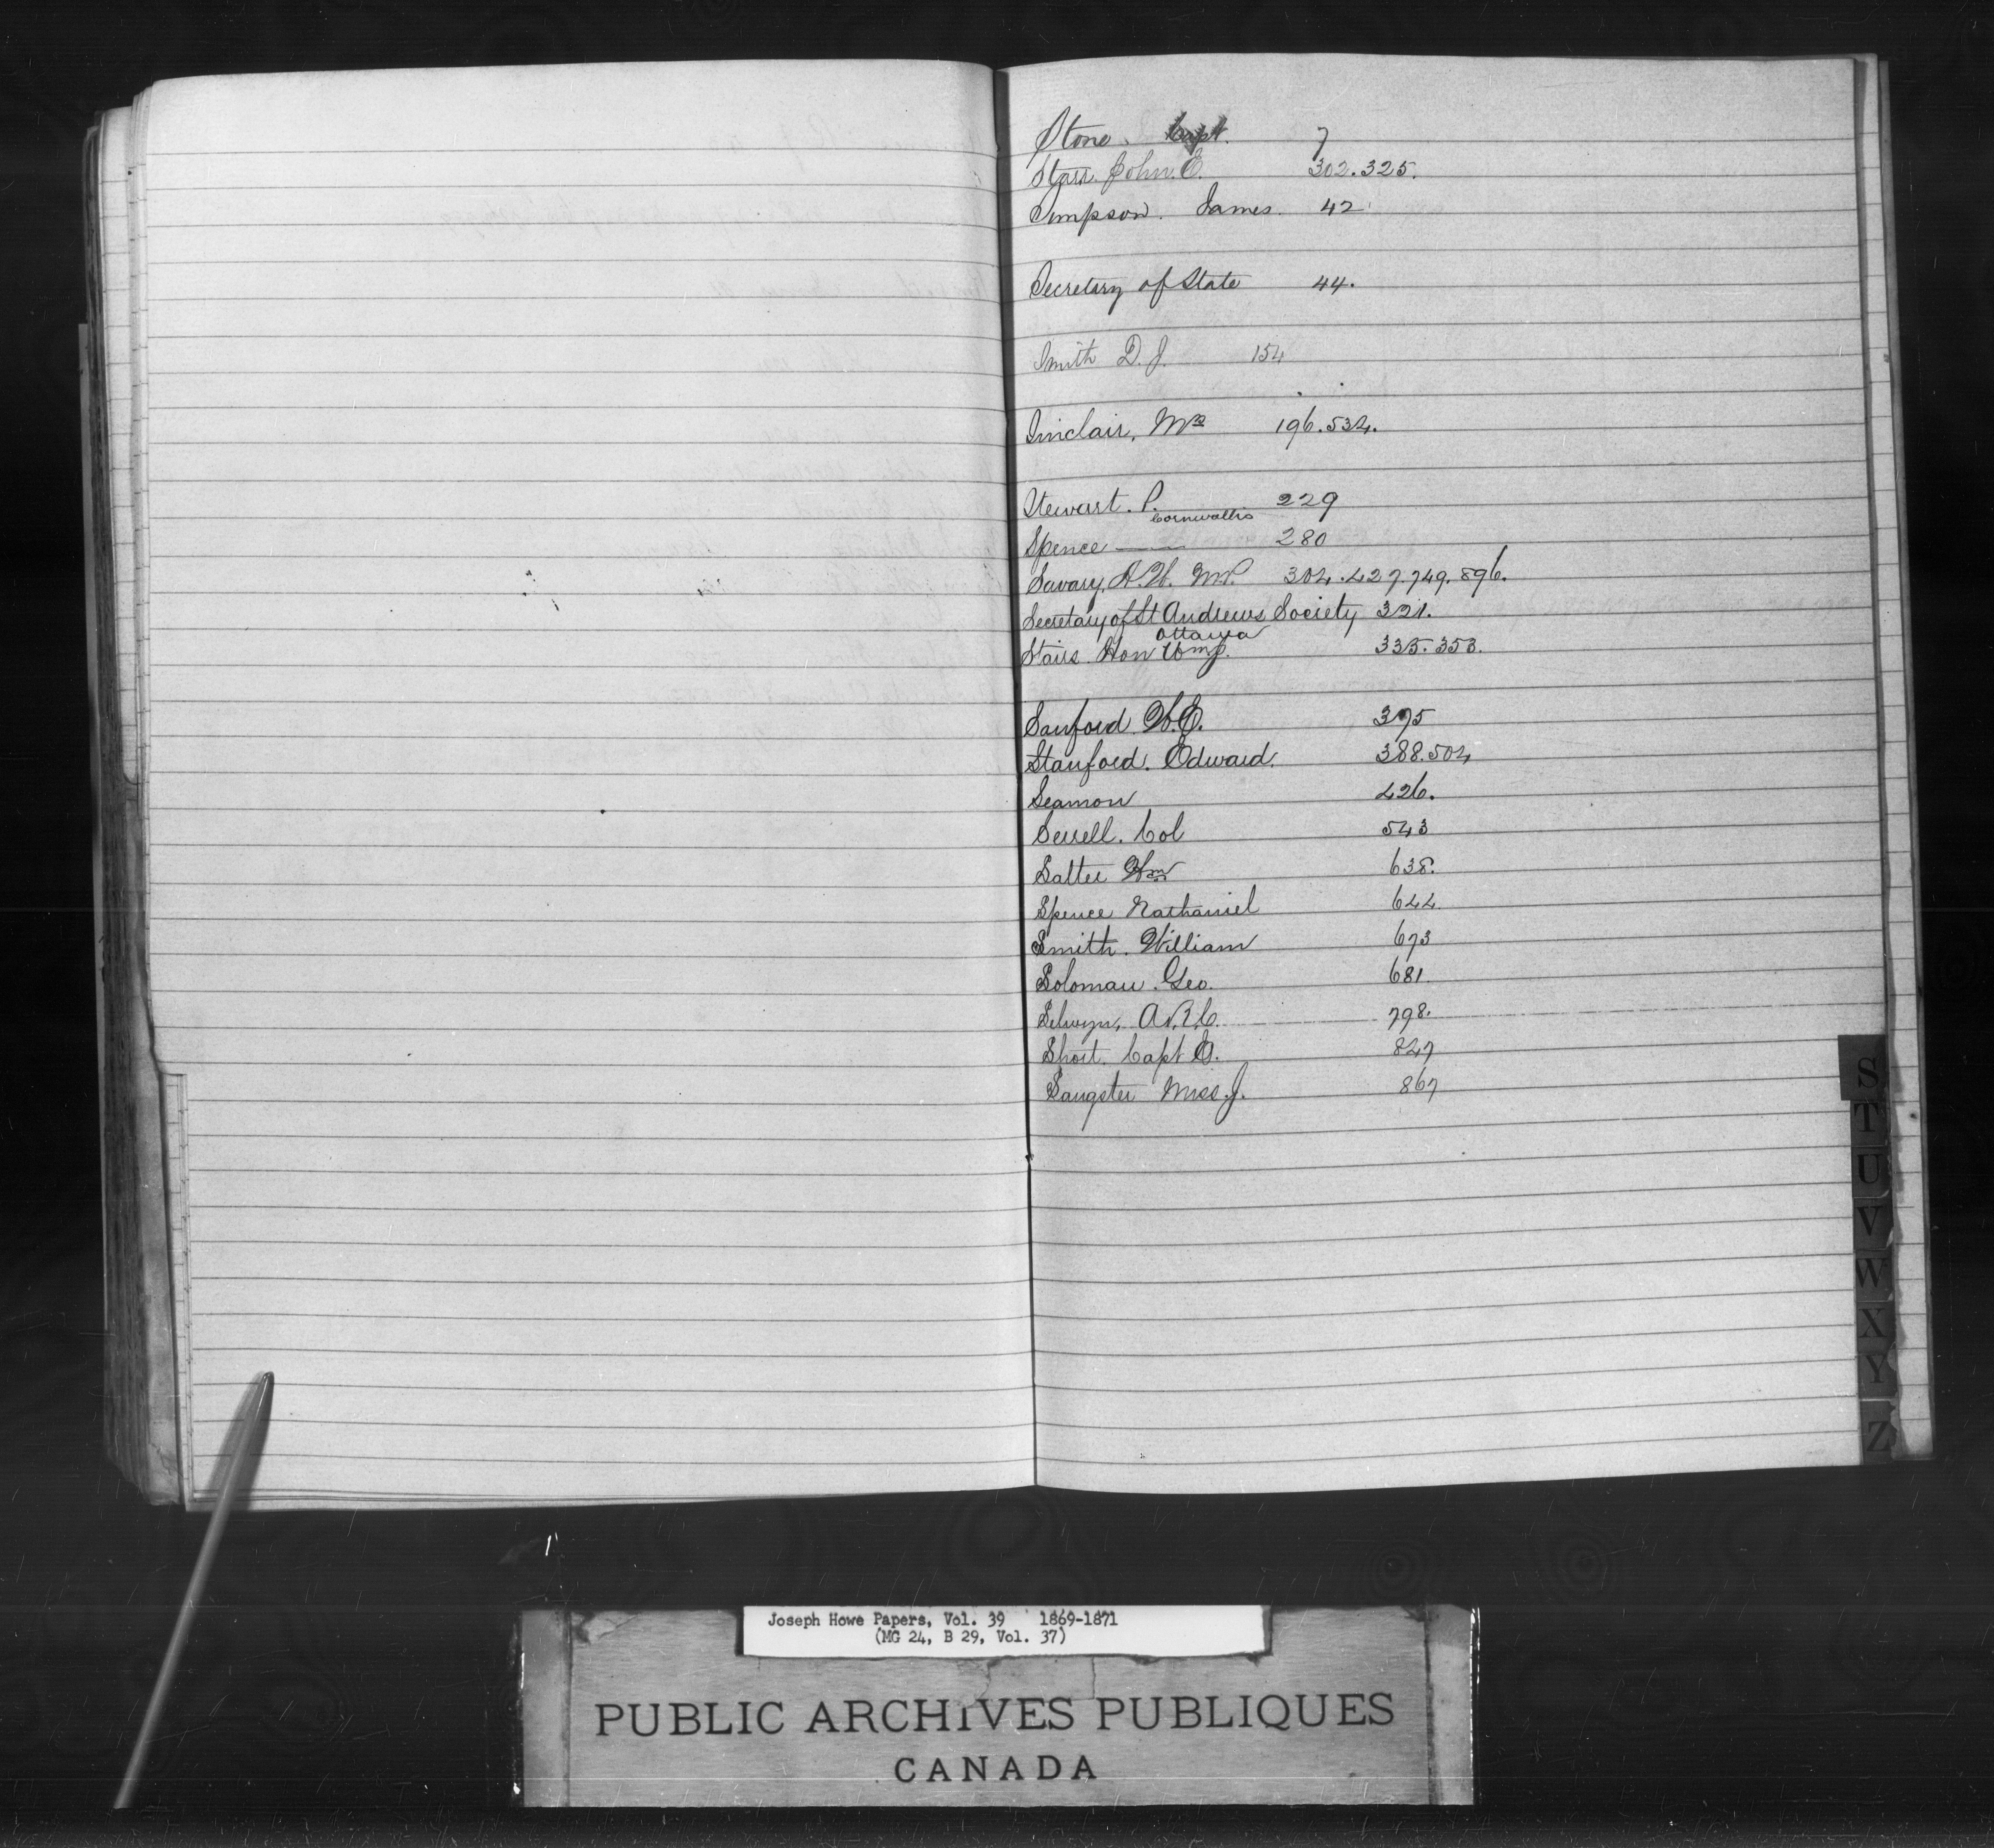 Stone. Capt. 7
Starr. John. E. 302.325.
Simpson. James. 42
Secretary of State 44.
Smith D. J. 154
Sinclair, Mrs 196.534.
Stewart. P. 229
Cornwallis
Spence —— 280
Savary, A. W. M.P. 304.427.749.896.
Secretary of St Andrews Society 321.
Ottawa
Stairs. Hon Wm J. 335.353.
Sanford. W. E. 375
Stanford. Edward. 388.504
Seamon 426.
Sewell. Col 543
Salter Wm 638.
Spence Nathaniel 644.
Smith. William 673
Soloman. Geo. 681.
Selwyn, A.R.C. 798.
Short. Capt E. 847
Sangster Miss. J. 867
S
T
U
V
W
X
Y
Z
Joseph Howe Papers, Vol. 39 1869-1871
(MG 24, B 29, Vol. 37)
PUBLIC ARCHIVES PUBLIQUES
CANADA